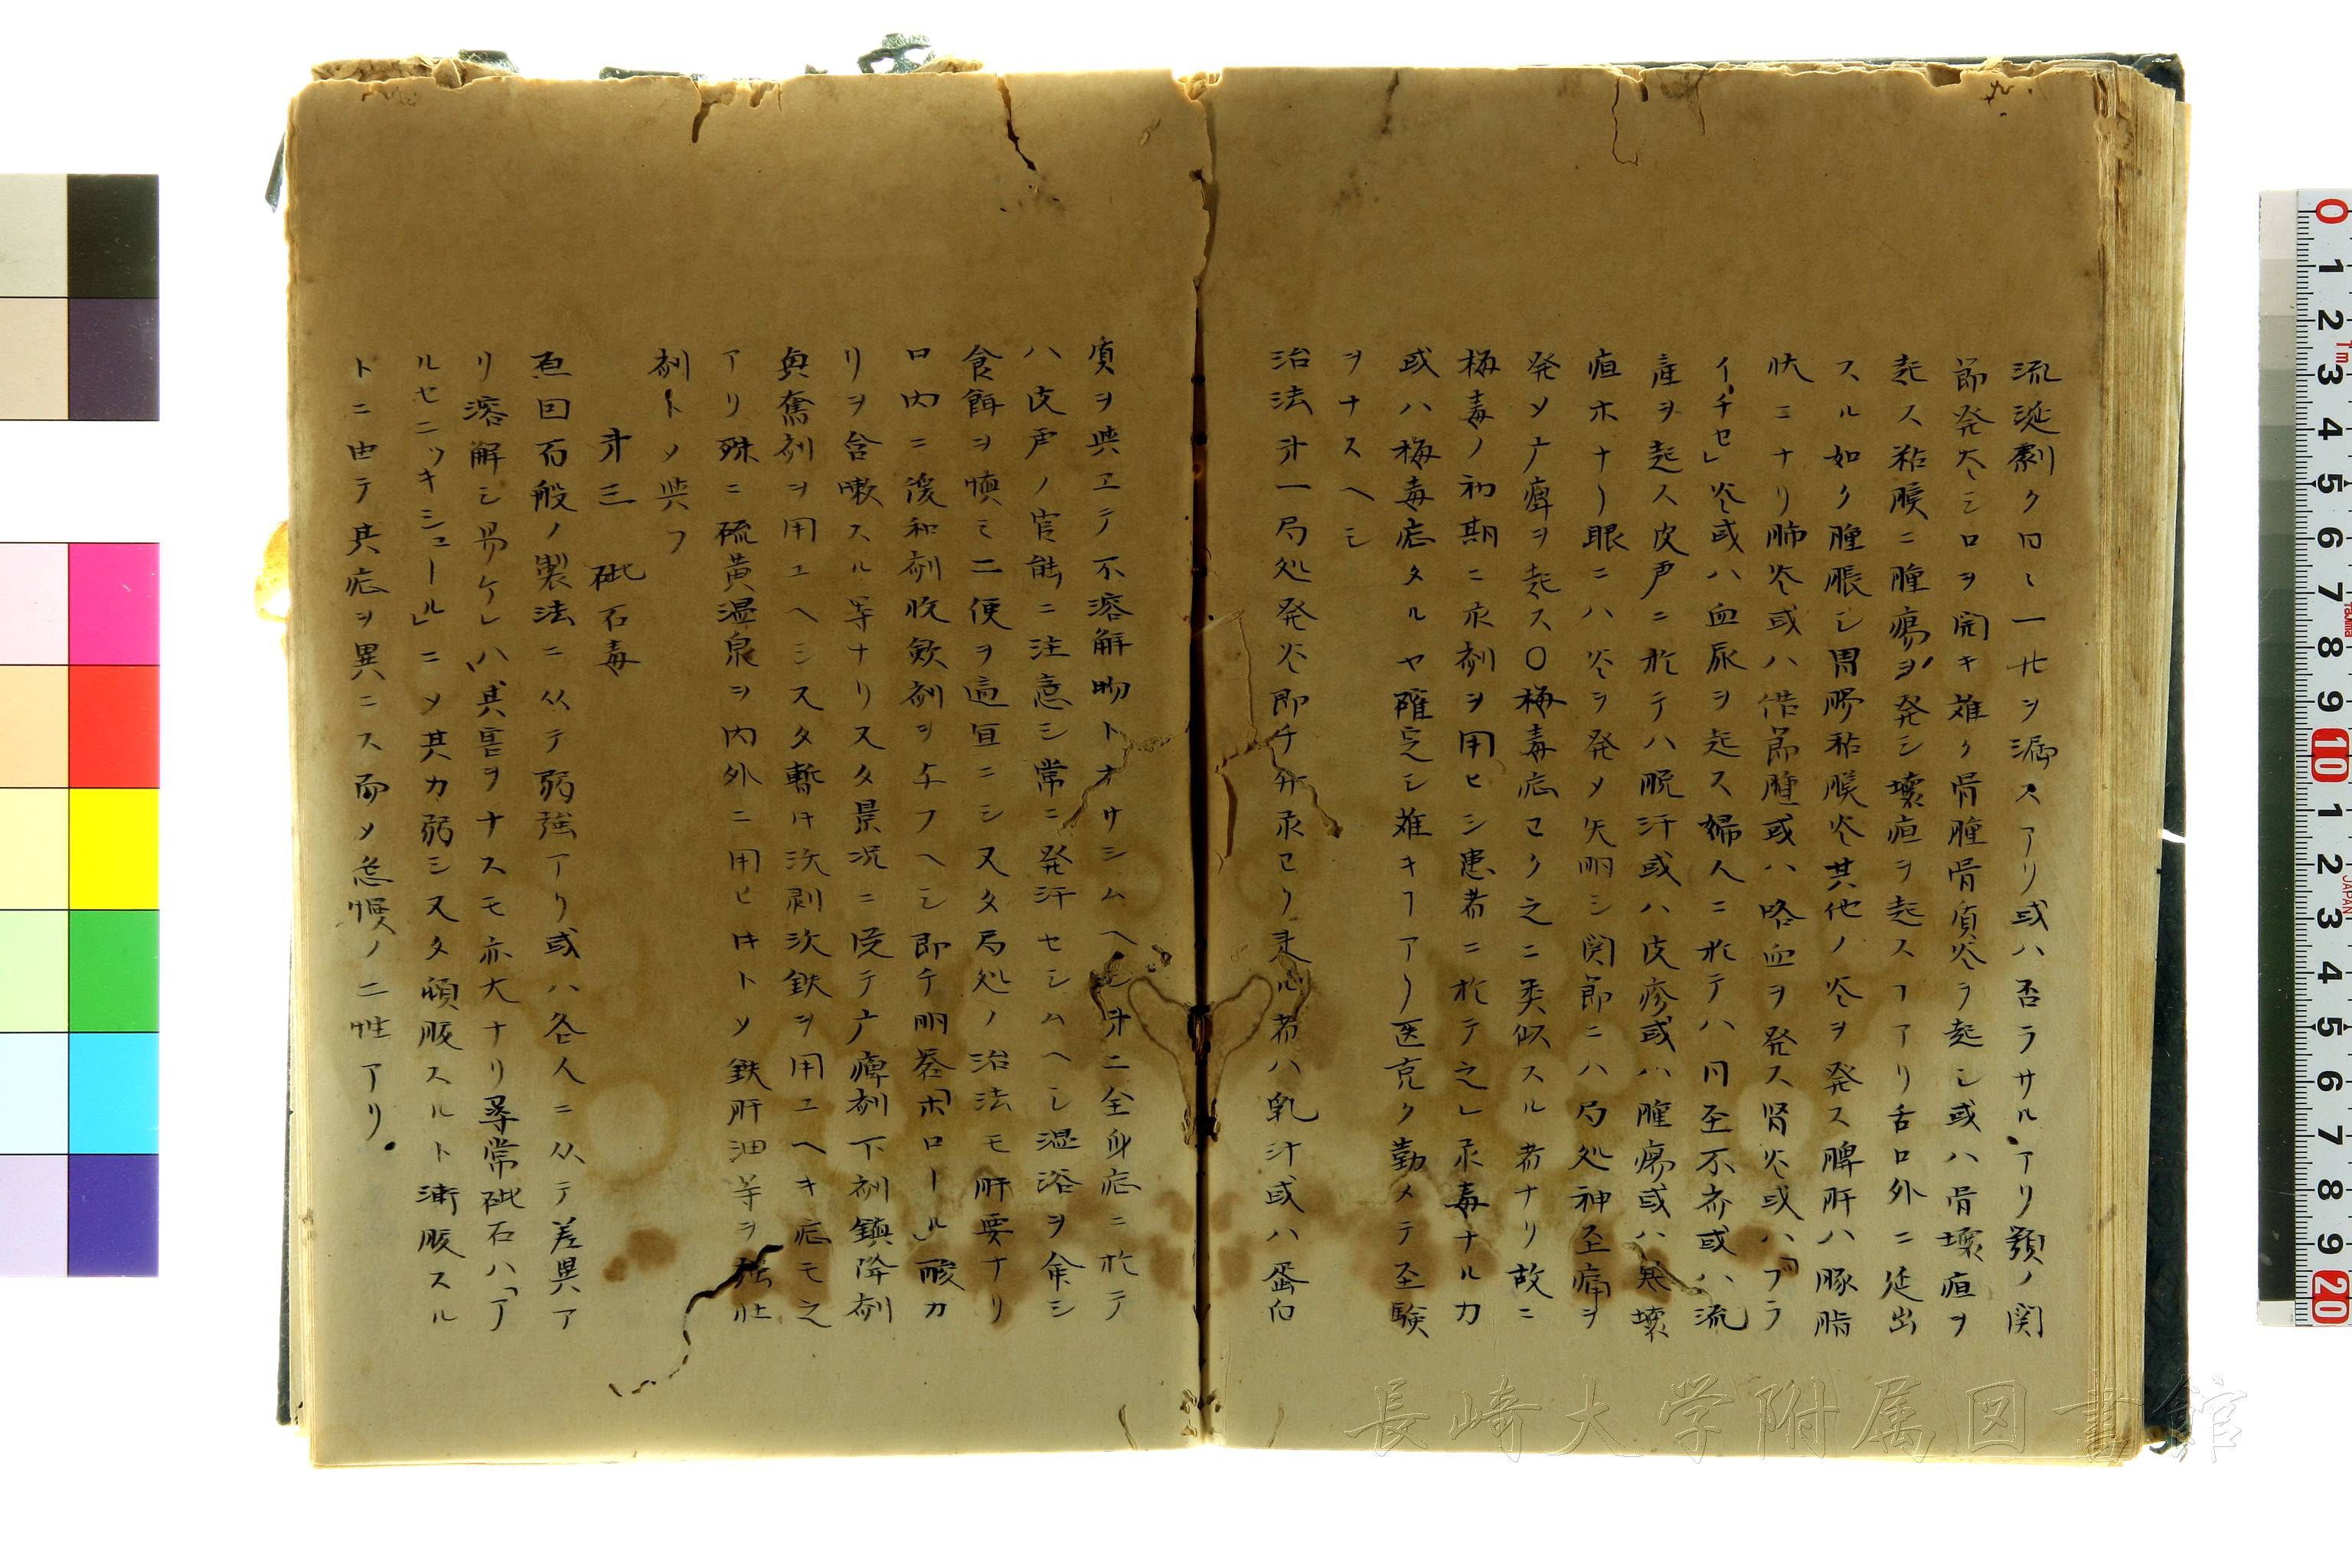 流涎劇ク日ニ一
ヲ漏スアリ或ハ否ラサルアリ顎ノ関
節発炎シ口ヲ開キ難ク骨腫骨質炎ヲ起シ或ハ骨壊疽ヲ
起ス粘膜ニ腫瘍ヲ発シ壊疽ヲ起スヿアリ舌口外ニ延出
スル如ク腫脹シ胃腸粘膜炎其他ノ炎ヲ発ス脾肝ハ豚脂
状ニナリ肺炎或ハ
節腫或ハ咯血ヲ発ス腎炎或ハ「ブラ
イチセ」炎或ハ血尿ヲ起ス婦人ニ於テハ月至不斉或ハ流
産ヲ起ス皮戸ニ於テハ脱汗或ハ皮疹或ハ腫瘍或ハ
壊
疽ホナリ眼ニハ炎ヲ発メ矢明シ関節ニハ局処神至痛ヲ
発メ广痺ヲ起ス〇梅毒症ヨク之ニ類似スル者ナリ故ニ
梅毒ノ初期ニ汞剤ヲ用ヒシ患者ニ於テ之レ汞毒ナルカ
或ハ梅毒症タルヤ確定シ難キヿアリ医克ク勤メテ至験
ヲナスヘシ
治法才一局処発炎即チ升汞ヨリ来ル者ハ乳汁或ハ蛋白
質ヲ與ヱテ不溶解物トナサシムヘシ才二全身症ニ於テ
ハ皮戸ノ官能ニ注意シ常ニ発汗セシムヘシ温浴ヲ命シ
食餌ヲ慎ミ二便ヲ適宜ニシ又タ局処ノ治法モ肝要ナリ
口内ニ緩和剤收歛剤ヲ与フヘシ即チ明礬「ホロール」酸カ
リヲ含嗽スル等ナリ又タ景况ニ従テ广痺剤下剤鎮降剤
興奮剤ヲ用ユヘシ又タ暫時沃剥沃鉄ヲ用ユヘキ症モ之
アリ殊ニ硫黄温泉ヲ内外ニ用ヒ時トメ鉄肝油等ヲ強壮
剤トメ與フ
才三　砒石毒
亜曰石般ノ製法ニ从テ弱強アリ或ハ各人ニ从テ差異ア
リ溶解シ易ケレハ其害ヲナスモ亦大ナリ尋常砒石ハ「ア
ルセニツキシュール」ニメ其力弱シ又タ頓服スルト漸服スル
トニ由テ其症ヲ異ニス而メ急慢ノ二性アリ
長崎大学附属図書館